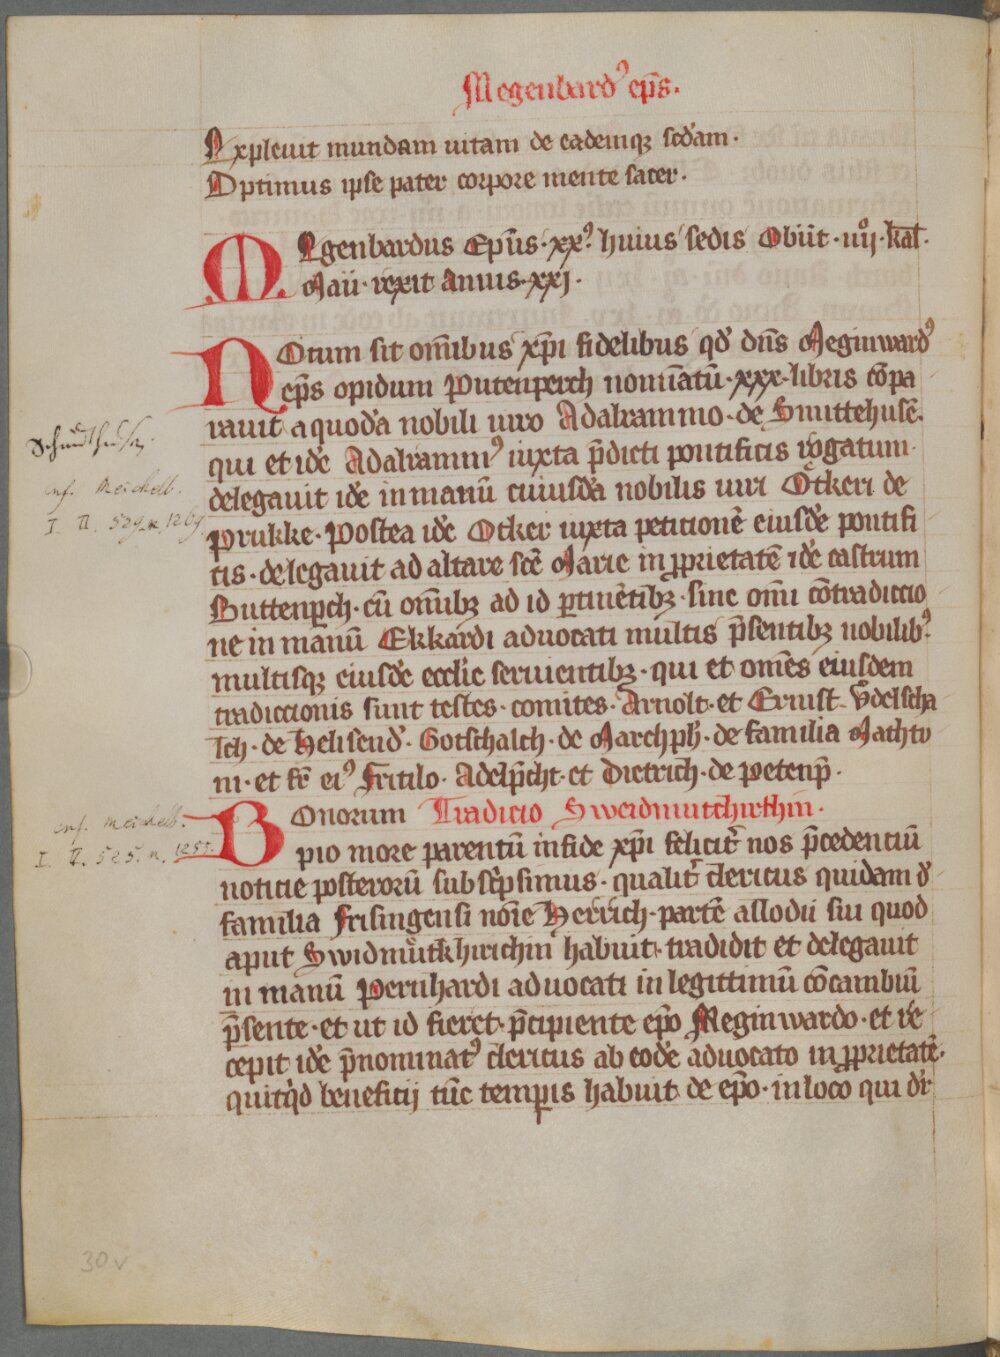 Megenbard᾽ ep̄s.
Expleuit mundam uitam de eademqꝫ sedam.
Optimus ipse pater corpore mente sacer.
MEgenbardus Ep̄us·xx᾽ huius sedis Obiit·iiij·kal̄·
Maii·rexit annis·xxj·
NOtum sit om̄ibus xp̄i fidelibus qd̓ dn̄s Meginward᾽
ep̄s opidum Putenperch nominatū·xxx·libris cōpa
rauit a quodā nobili uiro Adalrammo·de Smittehusē·
qui et idē Adalramm᾽ iuxta p̄dicti pontificis rogatum·
delegauit idē in manū cuiusdā nobilis uiri Otkeri de
Prukke·Postea idē Otker iuxta petitionē eiusdē pontifi
cis·delegauit ad altare scē Marie in ꝓprietatē idē castrum
Buttenꝑch·cū om̄ibꝫ ad id ꝑtinētibꝫ·sine om̄i cōtradiccio
ne in manū Ekkardi aduocati multis p̄sentibꝫ nobilib᾽·
multisqꝫ eiusdē ecclīe seruientibꝫ·qui et om̄es eiusdem
tradiccionis sunt testes·comites·Arnolt·et Ernust·Vͦdelscha
lch·de Helisend̓·Gotschalch·de Marchꝑh̄·de familia Machtv
ni·et fr̄ ei᾽ Fritilo·Adelp̄cht·et Dietrich·de petenꝑ·
BOnorum Tradicio Sweidmutchirchin·
pio more parentū in fide xp̄i felicit᾽ nos p̄cedentiū
noticie posterorū subsc̓psimus·qualit᾽ clericus quidam d̓
familia Frisingensi nōie Herrich·partē allodii sui quod
aput Swidmuͦtkhirichin habuit·tradidit et delegauit
in manū Pernhardi aduocati in legittimū cōcambiū
p̄sente·et ut id fieret·p̄cipiente ep̄o Meginwardo·et re
cepit idē p̄nominat᾽ clericus ab eodē aduocato in ꝓprietatē·
quitq̓d beneficij tūc tempꝑis habuit de ep̄o·in loco qui dr̄
conf. Meichelb.
I. II. 529. n. 1269.
conf. Meichelb.
I. II. 525. n. 1255.
30v